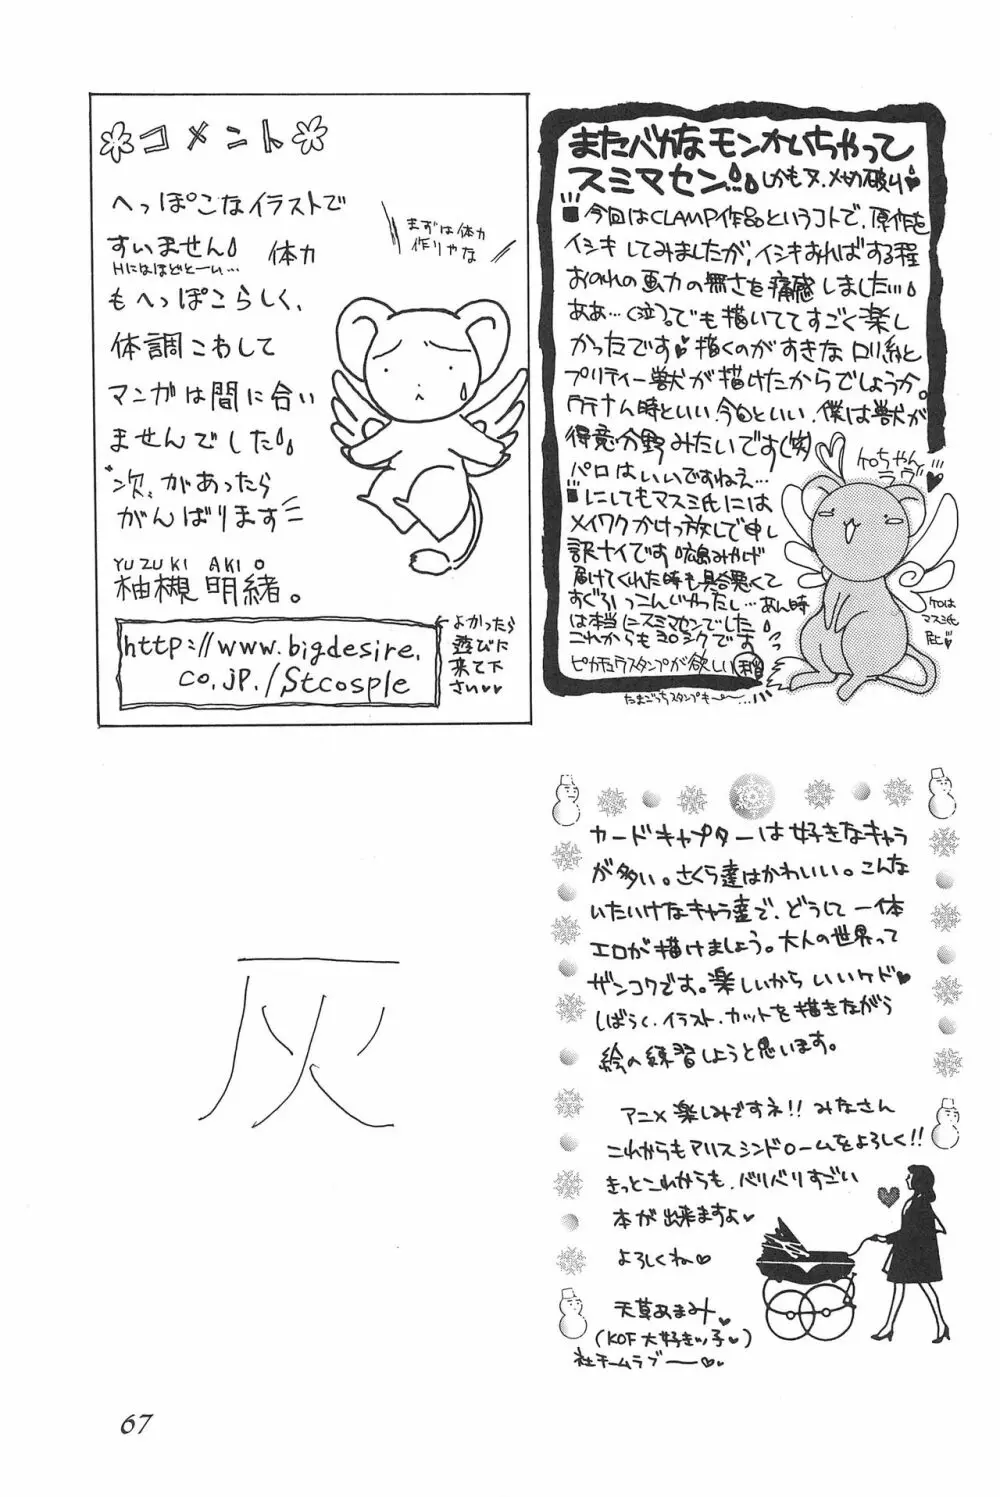 コメント
へっぽこなイラストで
すいません
Hにはほどとーい…
体力
もへっぽこらしく、
体調こわして
マンガは間に合い
ませんでした
次、があったら
がんばります
まずは体力
作りやな
YUZUKI AKIO
柚槻 明緒。
http://www.bigdesire.
co.jp./Stcosple
よかったら
遊びに
来て下
さい
またバカなモンかいちゃって
スミマセン…。しかもヌ、〆め破り
今回はCLAMP作品というコトで、原作を
イシキしてみましたが、イシキすればする程
おのれの画力の無さを痛感しました…
ああ…(泣)。でも描いててすごく楽し
かったです 描くのがすきなロリ絵と
プリティー獣が描けたからでしょうか。
時といい、今回といい、僕は獣が
得意分野みたいです(笑)
パロはいいですねえ…
にしてもマスミ氏には
メイワクかけっ放しで申し
訳ナイです 広島みやげ
届けてくれた時も具合悪くて
すぐふっこんじゃったし…あん時
は本当にスミマセンでした
これからもヨロシクです
ピカチュウスタンプが欲しい
たまごっちスタンプもー…
ケロちゃん
ラヴ
ケロは
マスミ氏
カードキャプターは好きなキャラ
が多い。さくら達はかわいい。こんな
いたいけなキャラ達で、どうして一体
エロが描けましょう。大人の世界って
ザンコクです。楽しいからいいケド
しばらく、イラスト、カットを描きながら
絵の練習しようと思います。
アニメ楽しみですネ!! みなさん
これからもアリスシンドロームをよろしく!!
きっとこれからも、バリバリすごい
本が出来ますよ
よろしくね
天草あまみ
(KOF大好きッ子)
社チームラブー
灰
67